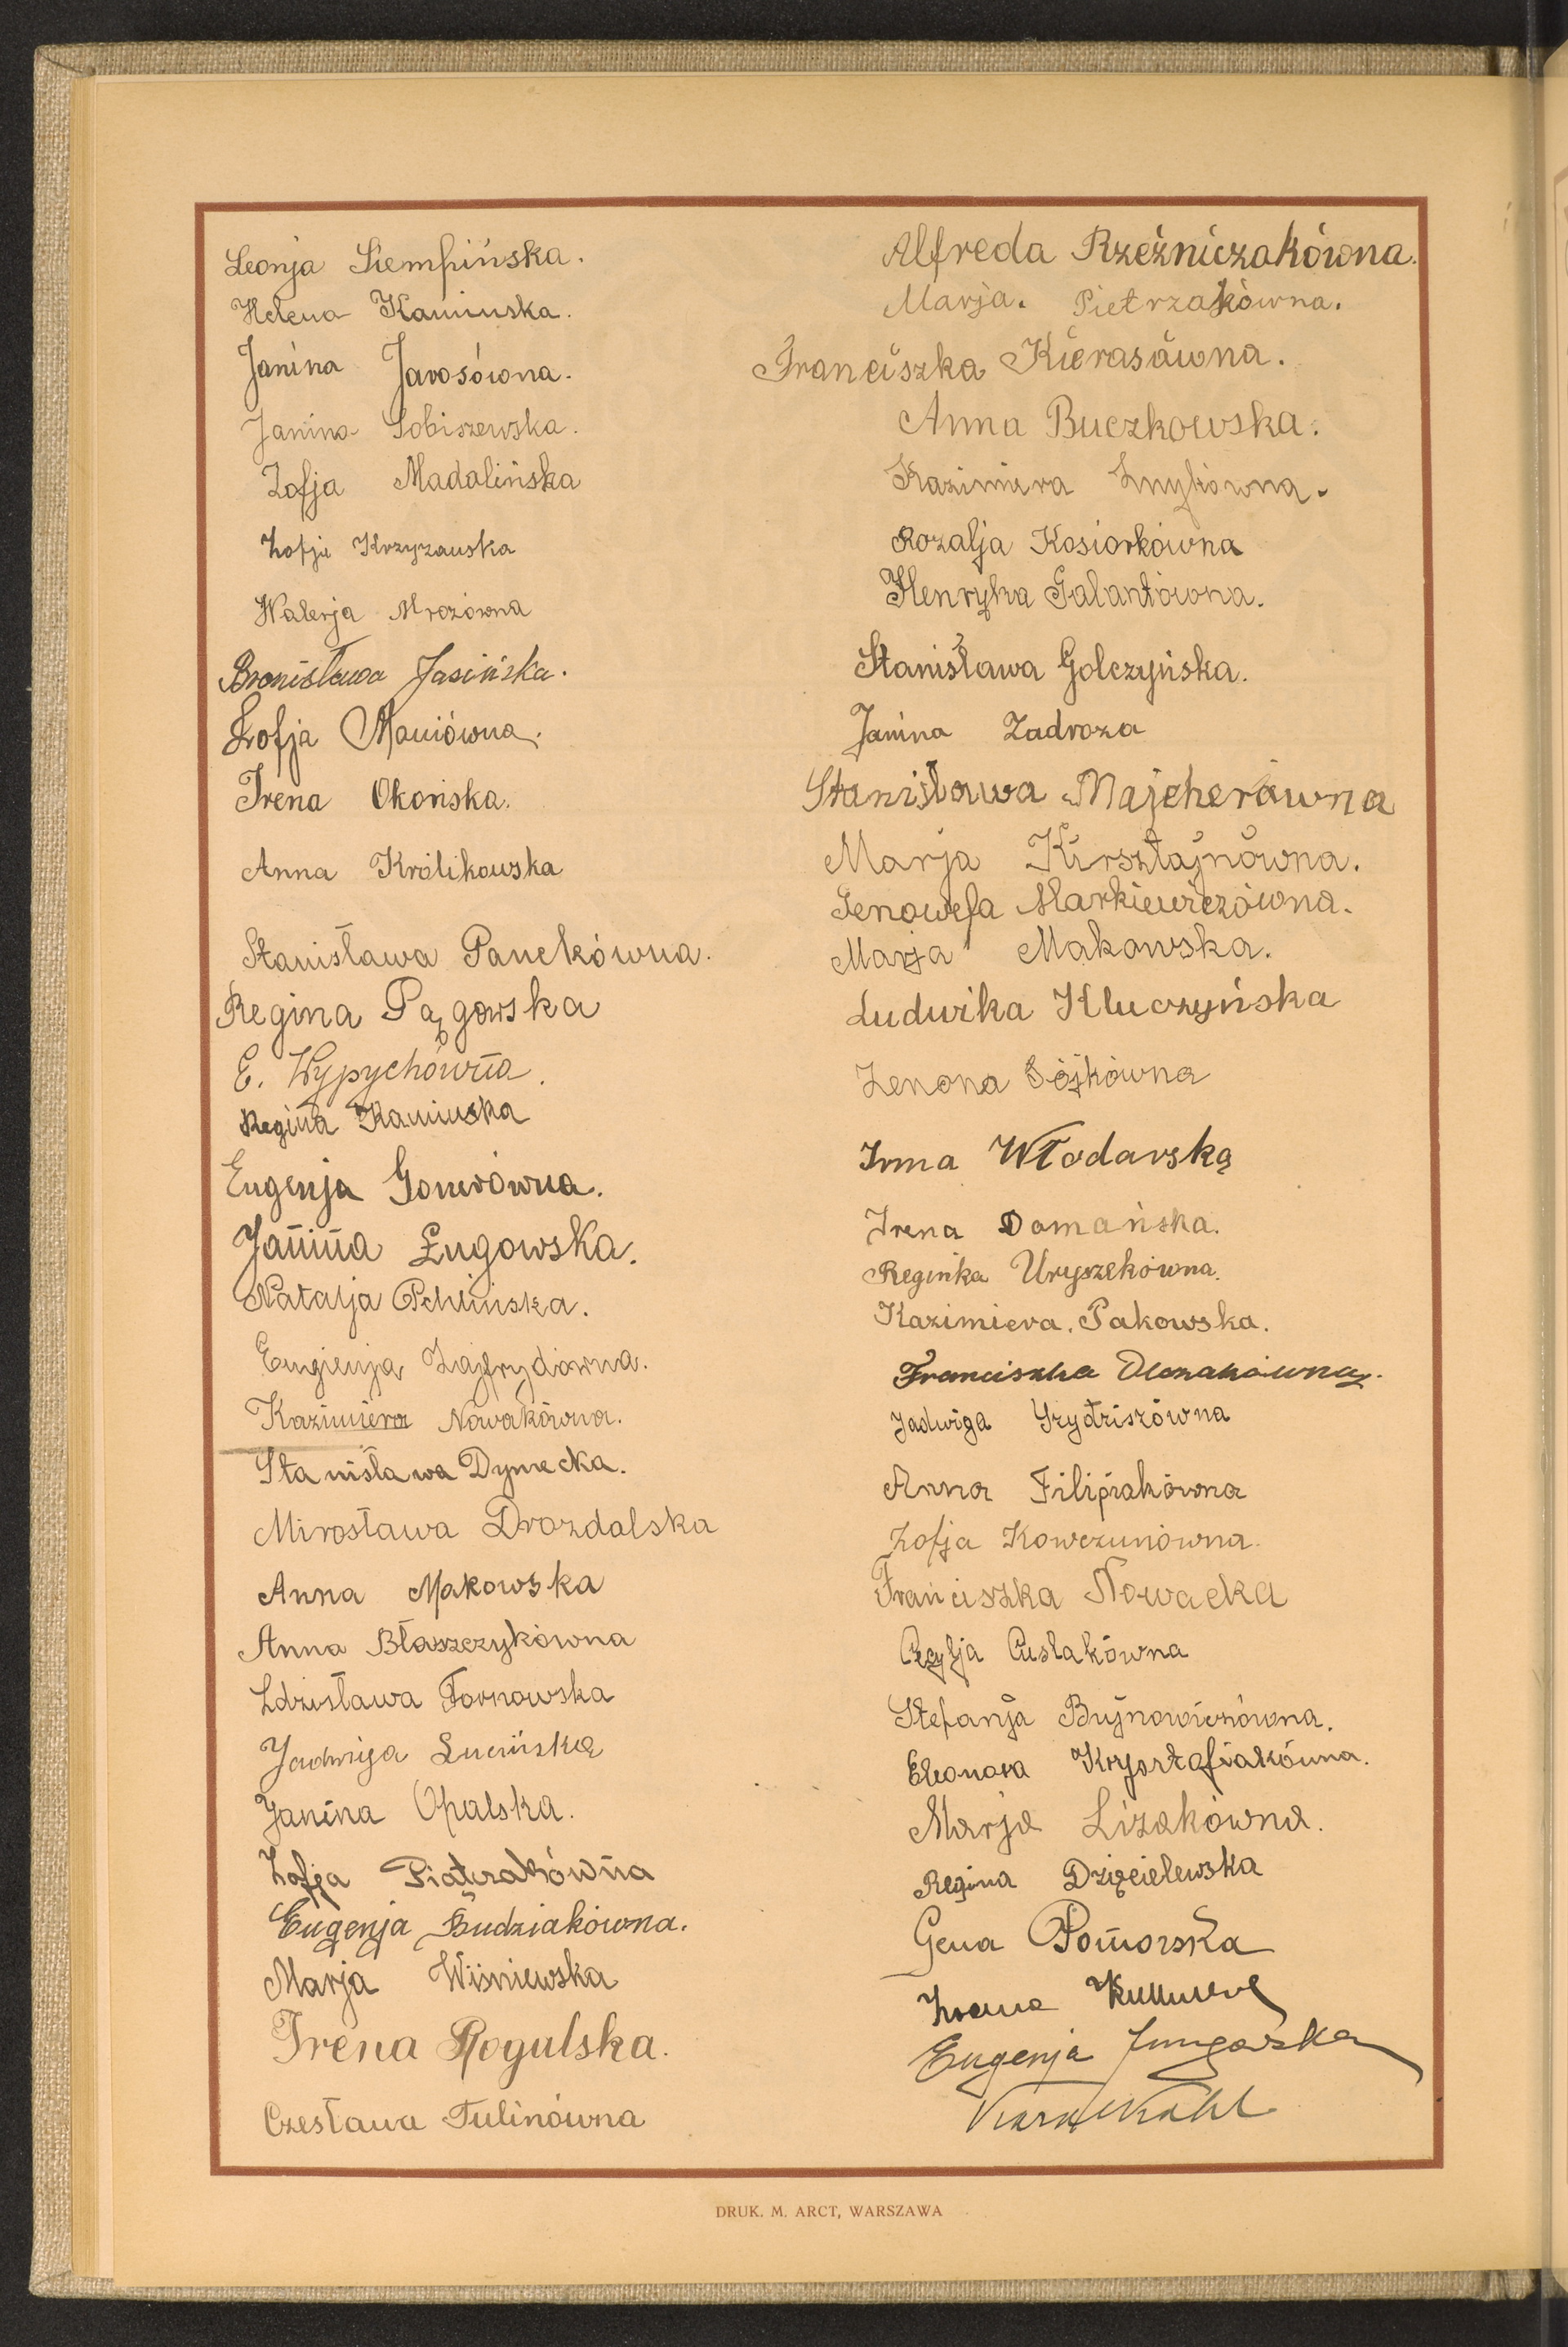 Leonja Siempińska.
Helena Kamińska.
Janina Jarosówna.
Janina Sobiszewska.
Zofja Madalińska
Zofja Krzyzanska
Walerja Mrozówna
Bronisława Jasińska.
Zofja Maniówna.
Irena Okońska.
Anna Królikowska
Stanisława Panekówna.
Regina Pągowska
E. Wypychówna.
Regina Kaminska
Eugenja Gonerówna.
Janina Ługowska.
Natalja Pchlińska.
Eugienja Zajfrydówna.
Kazimiera Nowakówna.
Stanisława Dymecka.
Mirosława Drozdalska
Anna Makowska
Anna Błaszczykówna
Zdzisława Tornowska
Jadwiga Łucińska
Janina Opalska.
Zofja Piąterakówna
Eugenja Budziakówna.
Marja Wiśniewska
Irena Rogulska.
Czesława Tulinówna
Alfreda Rzeźniczakówna.
Marja. Pietrzakówna.
Franciszka Kierasówna.
Anna Buczkowska.
Kazimiera Zmykówna.
Rozalja Kosiorkówna
Henryka Galantówna.
Stanisława Golczyńska.
Janina Zadroza
Stanisława Majcherówna
Marja Kirsztajnówna.
Genowefa Markiewiczówna.
Marja Makowska.
Ludwika Kluczyńska
Zenona Sójkówna
Irma Włodarska
Irena Domańska.
Reginka Uryszekówna.
Kazimiera. Pakowska.
Franciszka Olczakówna.
Jadwiga Grydziszówna
Anna Filipiakówna
Zofja Kowczunówna.
Franciszka Nowacka
Cecylja Cuslakówna
Stefanja Bujnowiczówna.
Eleonora Krysztofiakówna.
Marja Lizakówna.
Regina Dzięcielewska
Gena Pomorska
Eugenja Jungowska
DRUK. M. ARCT, WARSZAWA